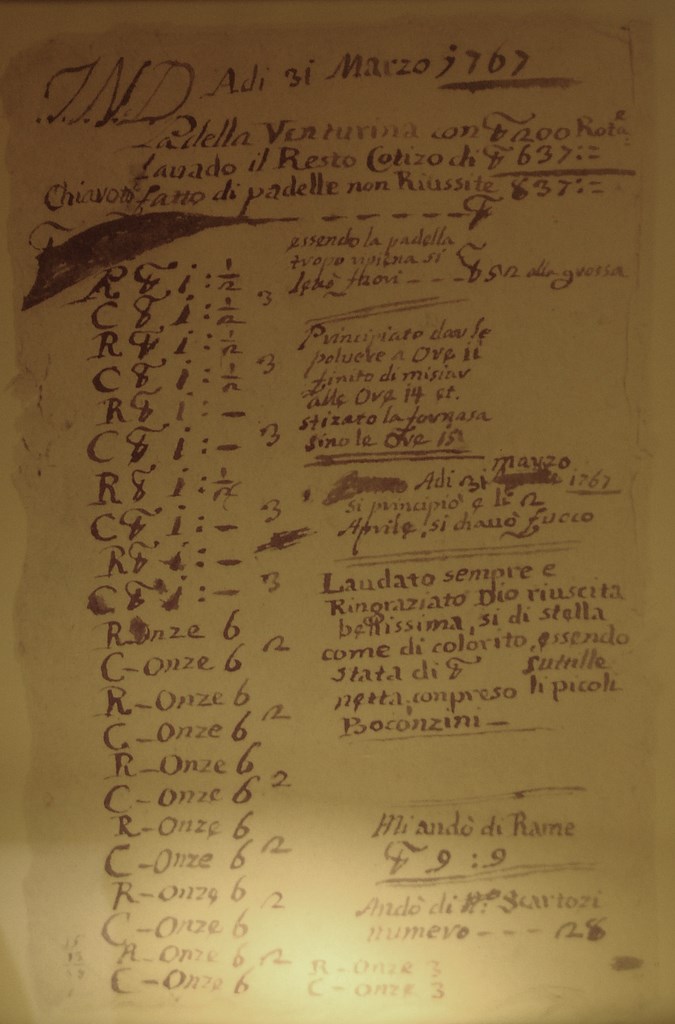 I.N.D Adi 31 Marzo 1767
Padella Venturina con ₶ 200 Rota
Lavado il Resto Cotizo di ₶ 637:=
Chiavoto fatto di padelle non Riussite 837:=
essendo la padella
tropo ripiena si
levò fuori --- ₶ 52 alla grossa
R ₶ 1 : 1/2
C ₶ 1 : 1/2 3
R ₶ 1 : 1/2
C ₶ 1 : 1/2 3
R ₶ 1 : —
C ₶ 1 : — 3
R ₶ 1 : 1/2
C ₶ 1 : — 3
R ₶ 1 : —
C ₶ 1 : — 3
R Onze 6
C - Onze 6 2
R - Onze 6
C - Onze 6 2
R - Onze 6
C - Onze 6 2
R - Onze 6
C - Onze 6 2
R - Onze 6
C - Onze 6 2
R - Onze 6 2
C - Onze 6
R - Onze 3
C - Onze 3
Principiato dar le
polvere a Ore 11
finito di misiar
alle Ore 14 et.
stizato la fornasa
sino le Ore 15
Adi 31 marzo 1767
si principiò e li 2
Aprile, si chavò fuoco
Laudato sempre e
Ringraziato Dio riuscita
bellissima, si di stella
come di colorito, essendo
stata di ₶ suttille
netta, conpreso li picoli
Boconzini —
Mi andò di Rame
₶ 9 : 9
Andò di Scartozi
numero --- 28